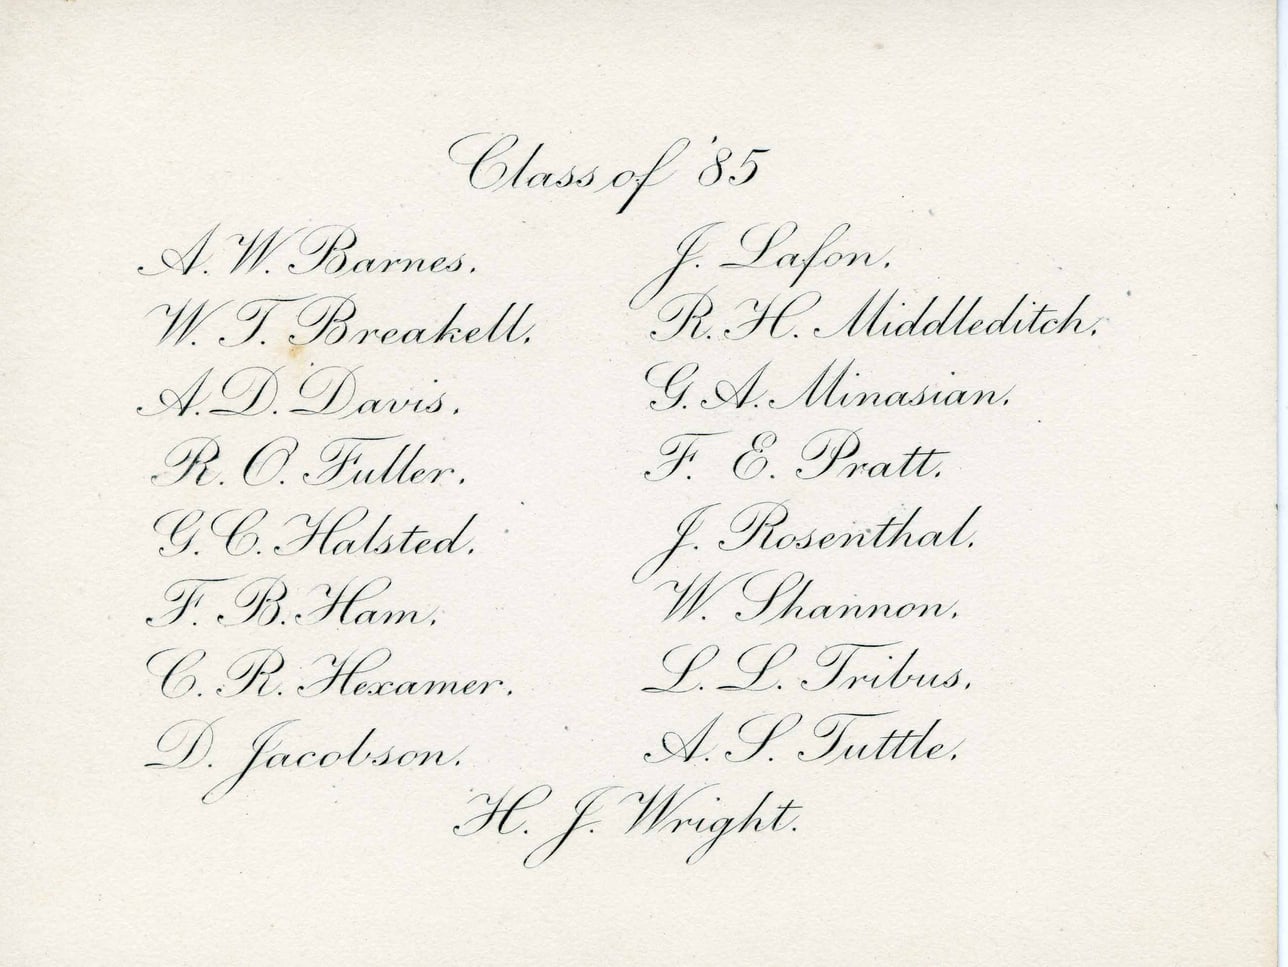 Class of '85
A. W. Barnes.
W. T. Breakell.
A. D. Davis.
R. O. Fuller.
G. C. Halsted.
F. B. Ham.
C. R. Hexamer.
D. Jacobson.
J. Lafon.
R. H. Middleditch.
G. A. Minasian.
F. E. Pratt.
J. Rosenthal.
W. Shannon.
L. L. Tribus.
A. S. Tuttle.
H. J. Wright.